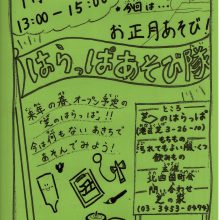 13:00-15:00
今回は…
お正月あそび!
はらっぱあそび隊
来年の春、オープン予定
の"芝のはらっぱ"。
今は何もないあきちで
あそんでみよう!
ところ
芝のはらっぱ
(港区芝3-26-10)
もちもの
汚れてもよい服・くつ
飲みもの
主催
問い合わせ
芝の家
(03-3453-0474)